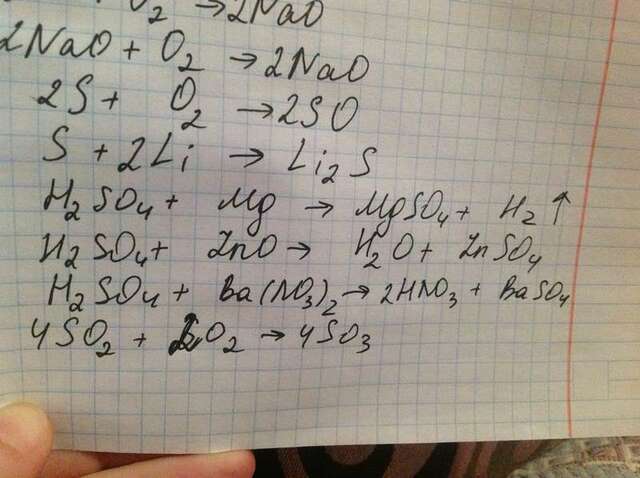 O₂ → 2NaO
2NaO + O₂ → 2NaO
2S + O₂ → 2SO
S + 2Li → Li₂S
H₂SO₄ + Mg → MgSO₄ + H₂ ↑
H₂SO₄ + ZnO → H₂O + ZnSO₄
H₂SO₄ + Ba(NO₃)₂ → 2HNO₃ + BaSO₄
4SO₂ + 2O₂ → 4SO₃